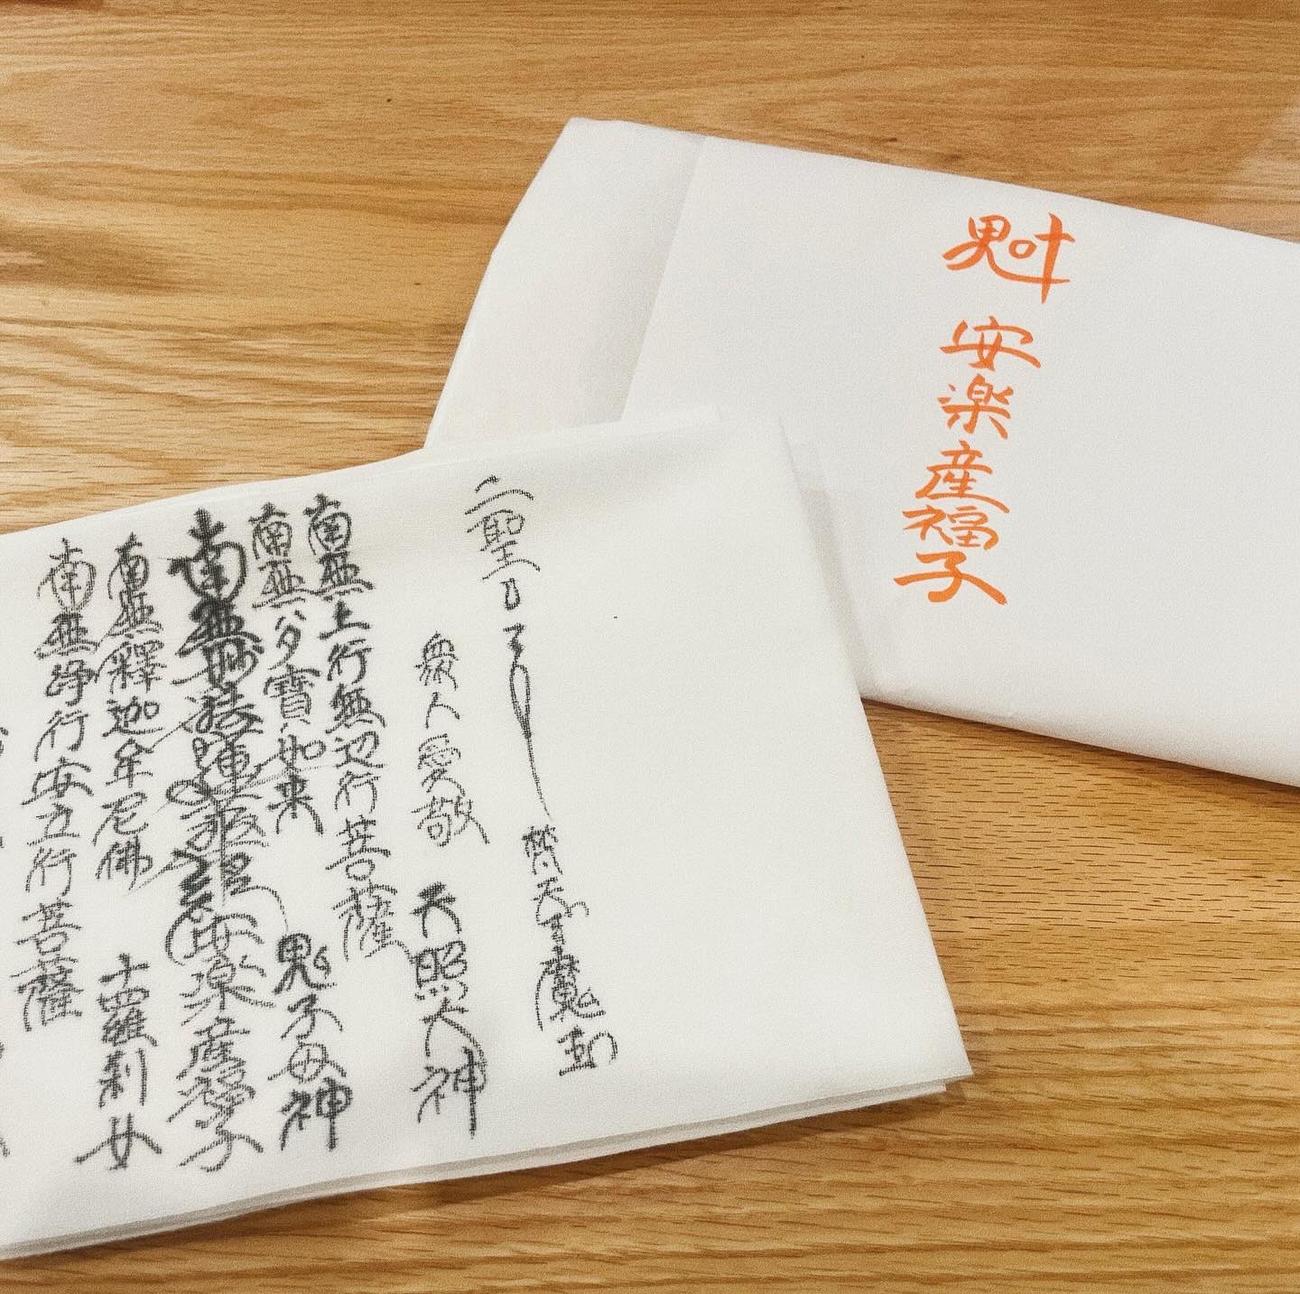 魁
安楽産福子
二聖
梵天 魔
衆人愛敬 天照大神
南無上行無辺行菩薩
南無多寶如来 鬼子母神
南無妙法蓮華経 安楽産福子
南無釋迦牟尼佛 十羅刹女
南無浄行安立行菩薩